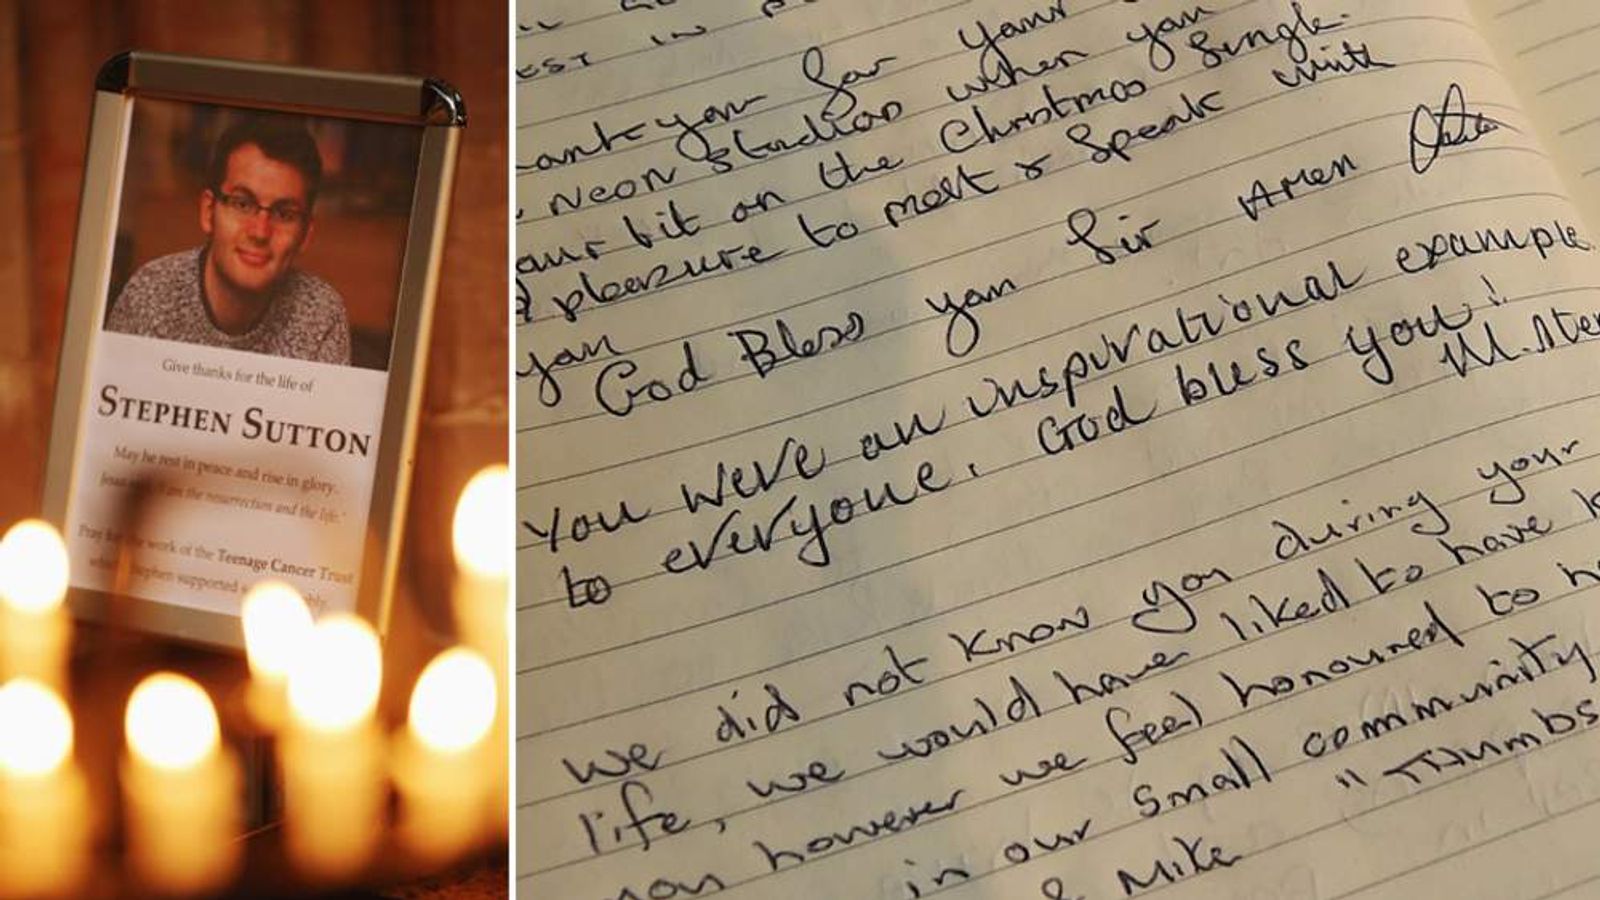 Give thanks for the life of
STEPHEN SUTTON
May he rest in peace and rise in glory.
I am the resurrection and the life.'
Pray for the work of the Teenage Cancer Trust
which Stephen supported
EST IN
ank you for your
Neon Studios when you
our bit on the Christmas Single.
pleazure to meet & speak with
you
God Bless you Sir Amen
You were an inspirational example
to everyone. God bless you!
M. Ste
We did not know you during your
life, we would have liked to have k
you however we feel honoured to h
in our small community
& Mike "Thumbs